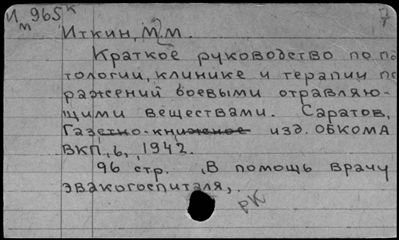 И 965к
м
Иткин, М.М.
Краткое руководство по па
тологии, клинике и терапии по
ражений боевыми отравляю-
щими веществами. Саратов,
Газетно-книжное изд. ОБКОМА
ВКП,б, 1942.
96 стр. В помощь врачу
эвакогоспиталя,.
рК